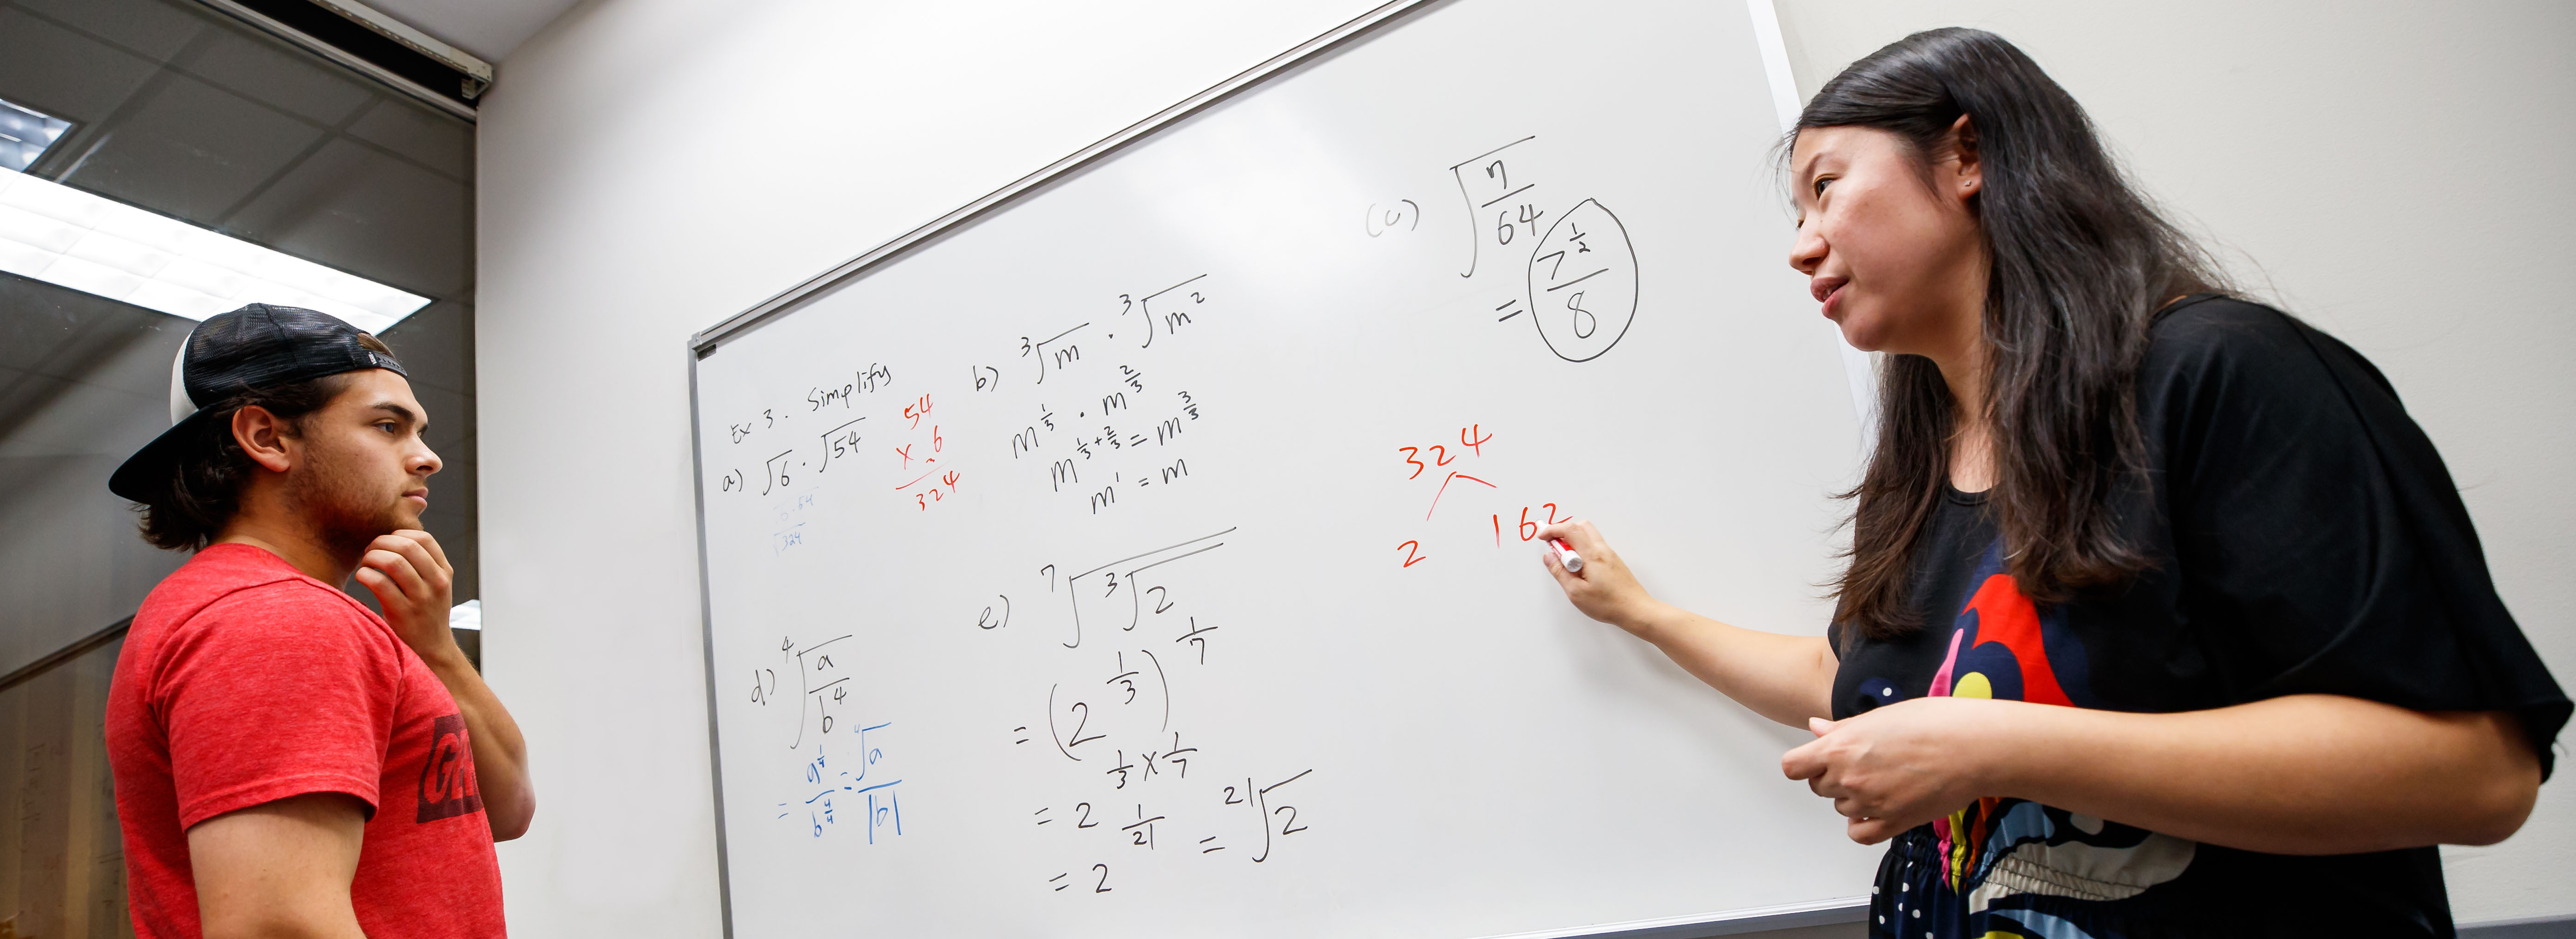 Ex 3. Simplify
a) √6 · √54
6·54
√324
54
× 6
324
b) ³√m · ³√m²
m^(1/3) · m^(2/3)
m^(1/3+2/3) = m^(3/3)
m¹ = m
(c) √(7/64)
= 7^(1/2)/8
324
2 162
d) ⁴√(a/b⁴)
= a^(1/4)/b^(4/4) = ⁴√a/|b|
e) ⁷√(³√2)
= (2^(1/3))^(1/7)
= 2^(1/3×1/7)
= 2^(1/21) = ²¹√2